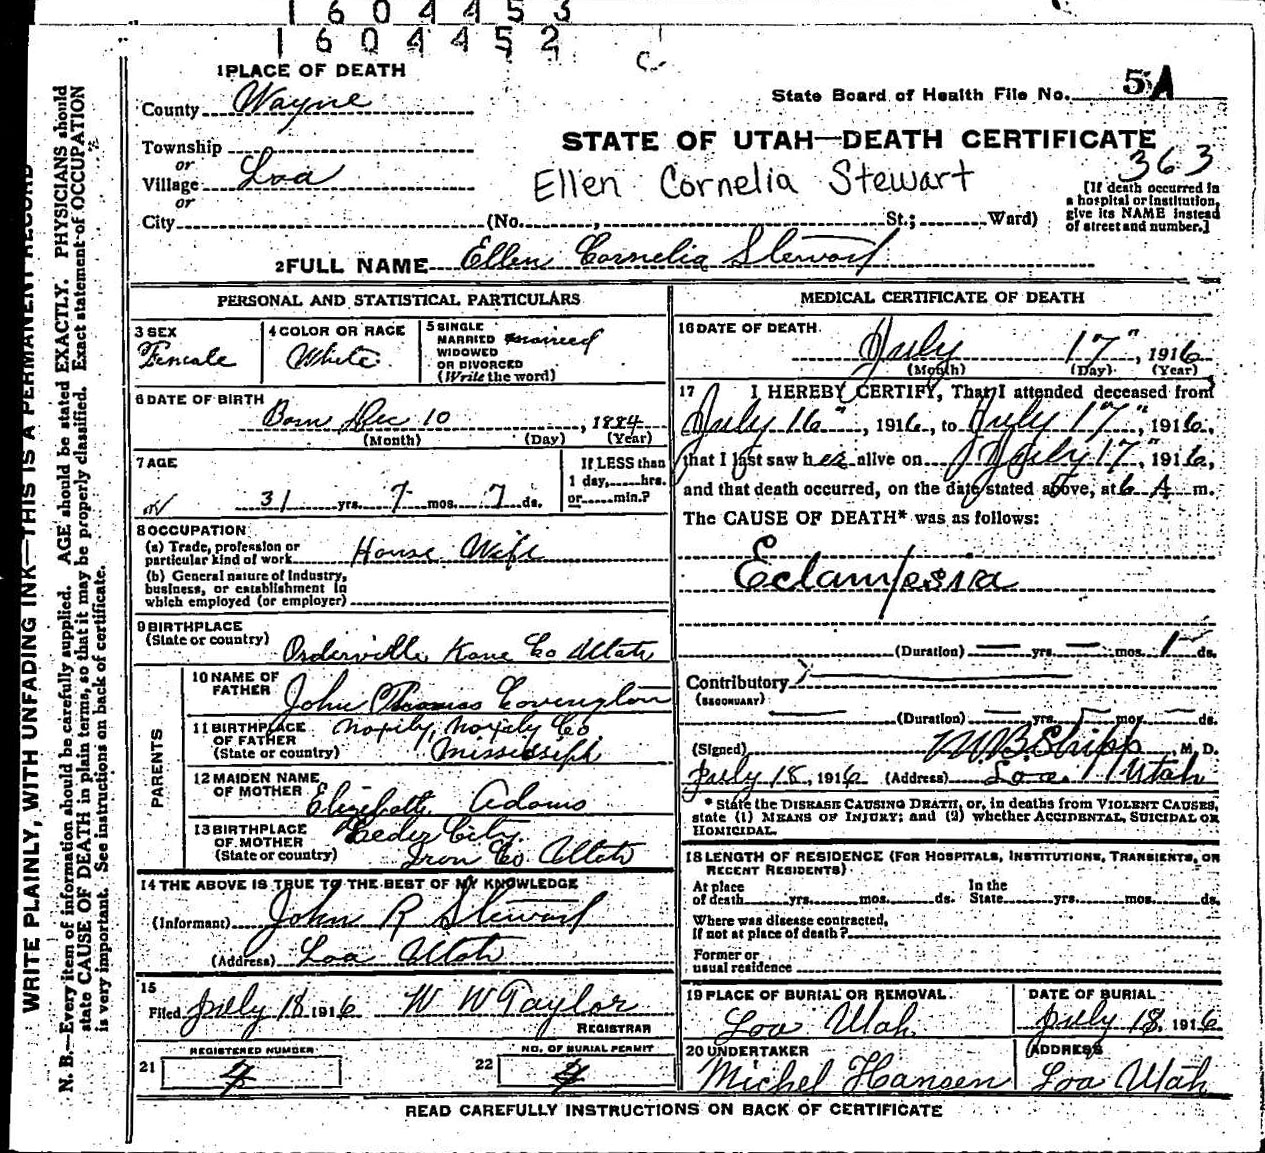 1604453
1604452
1 PLACE OF DEATH
County Wayne
State Board of Health File No. 5A
Township
or
Village Loa
or
City (No. , St.; Ward)
STATE OF UTAH—DEATH CERTIFICATE
363
Ellen Cornelia Stewart
[If death occurred in
a hospital or institution,
give its NAME instead
of street and number.]
2 FULL NAME Ellen Cornelia Stewart
PERSONAL AND STATISTICAL PARTICULARS
3 SEX
Female
4 COLOR OR RACE
White
5 SINGLE
MARRIED married
WIDOWED
OR DIVORCED
(Write the word)
6 DATE OF BIRTH
Born Dec 10, 1884
(Month) (Day) (Year)
7 AGE
31 yrs. 7 mos. 7 ds.
If LESS than
1 day, hrs.
or min.?
8 OCCUPATION
(a) Trade, profession or
particular kind of work House Wife
(b) General nature of Industry,
business, or establishment in
which employed (or employer)
9 BIRTHPLACE
(State or country) Orderville Kane Co Utah
PARENTS
10 NAME OF
FATHER John Thomas Covington
11 BIRTHPLACE
OF FATHER
(State or country) Mississippi
12 MAIDEN NAME
OF MOTHER Elizabeth Adams
13 BIRTHPLACE Ceder City
OF MOTHER
(State or country) Iron Co Utah
14 THE ABOVE IS TRUE TO THE BEST OF MY KNOWLEDGE
(Informant) John R Stewart
(Address) Loa Utah
15
Filed July 18 1916 W W Taylor
REGISTRAR
REGISTERED NUMBER
21 4
NO. OF BURIAL PERMIT
22 4
MEDICAL CERTIFICATE OF DEATH
16 DATE OF DEATH
July 17", 1916
(Month) (Day) (Year)
17 I HEREBY CERTIFY, That I attended deceased from
July 16", 1916, to July 17", 1916,
that I last saw her alive on July 17", 1916,
and that death occurred, on the date stated above, at 6 A m.
The CAUSE OF DEATH* was as follows:
Eclampsia
(Duration) — yrs. — mos. 1 ds.
Contributory
(SECONDARY)
(Duration) — yrs. mos. — ds.
(Signed) Shipp, M. D.
July 18, 1916 (Address) Loa Utah
* State the DISEASE CAUSING DEATH, or, in deaths from VIOLENT CAUSES,
state (1) MEANS OF INJURY; and (2) whether ACCIDENTAL, SUICIDAL OR
HOMICIDAL.
18 LENGTH OF RESIDENCE (FOR HOSPITALS, INSTITUTIONS, TRANSIENTS, OR
RECENT RESIDENTS)
At place
of death yrs. mos. ds.
In the
State yrs. mos. ds.
Where was disease contracted,
If not at place of death?
Former or
usual residence
19 PLACE OF BURIAL OR REMOVAL
Loa Utah
DATE OF BURIAL
July 18, 1916
20 UNDERTAKER
Michel Hansen
ADDRESS
Loa Utah
READ CAREFULLY INSTRUCTIONS ON BACK OF CERTIFICATE
WRITE PLAINLY, WITH UNFADING INK—THIS IS A PERMANENT RECORD
N. B.—Every item of information should be carefully supplied. AGE should be stated EXACTLY. PHYSICIANS should
state CAUSE OF DEATH in plain terms, so that it may be properly classified. Exact statement of OCCUPATION
is very important. See instructions on back of certificate.